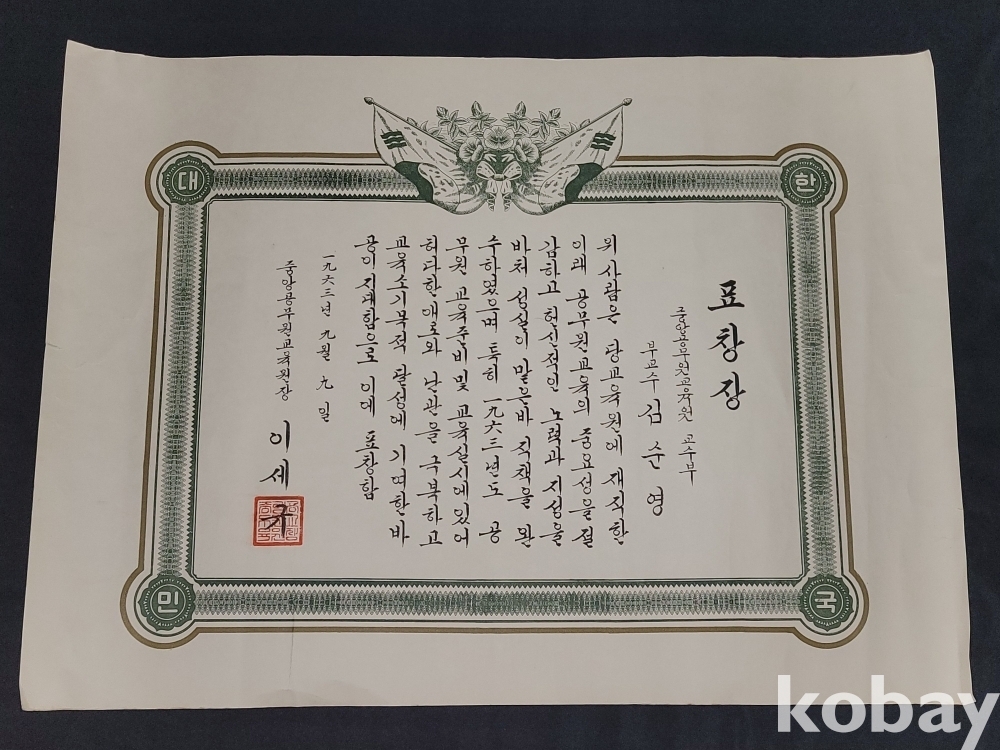 대한민국
표창장
중앙공무원교육원 교수부
부교수 김순영
위 사람은 당교육원에 재직한
이래 공무원교육의 중요성을 절
감하고 헌신적인 노력과 지성을
바쳐 성실이 맡은바 직책을 완
수하였으며 특히 一九六三년도 공
무원 교육준비 및 교육실시에 있어
허다한 애로와 난관을 극복하고
교육소기목적 달성에 기여한바
공이 지대함으로 이에 표창함
一九六三년 九월 九일
중앙공무원교육원장 이세
kobay